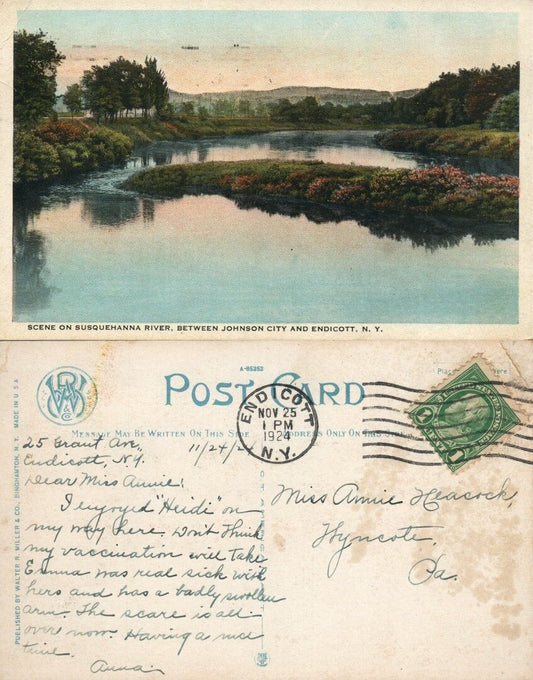 SCENE ON SUSQUEHANNA RIVER, BETWEEN JOHNSON CITY AND ENDICOTT, N. Y.
A-95353
POST CARD
MESSAGE MAY BE WRITTEN ON THIS SIDE
ADDRESS ONLY ON THIS SIDE
Place Here
ENDICOTT
NOV 25
1 PM
1924
N.Y.
1 1
PUBLISHED BY WALTER R. MILLER & CO., BINGHAMTON, N. Y. MADE IN U S A
25 Grant Ave,
Endicott, N.Y. 11/24/24
Dear Miss Annie:
I enjoyed "Heidi" on
my way here. Don't think
my vaccination will take
Emma was real sick with
hers and has a badly swollen
arm. The scare is all
over now. Having a nice
time.
Anna.
Miss Annie Heacock,
Wyncote,
Pa.